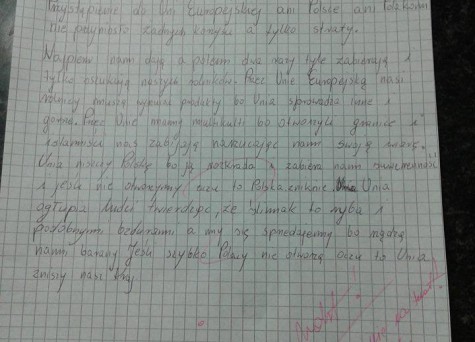 Przystąpienie do Uni Europejskiej ani Polsce ani Polakom
nie przyniosło żadnych korzyści a tylko straty.
Najpierw nam dają a potem dwa razy tyle zabierają i
tylko oszukują naszych rolników. Przez Unię Europejską nasi
rolnicy muszą wyrzucać produkty bo Unia sprowadza inne i
gorsze. Przez Unię mamy multikulti bo otworzyli granice i
islamiści nas zabijają narzucając nam swoją wiarę.
Unia niszczy Polskę bo ją rozkrada i zabiera nam suwerenność
i jeśli nie otworzymy oczu to Polska zniknie. Unia
ogłupia ludzi twierdząc, że ślimak to ryba i
podobnymi bzdurami a my się sprzedajemy bo rządzą
nami barany. Jeśli szybko Polacy nie otworzą oczu to Unia
zniszczy nasz kraj.